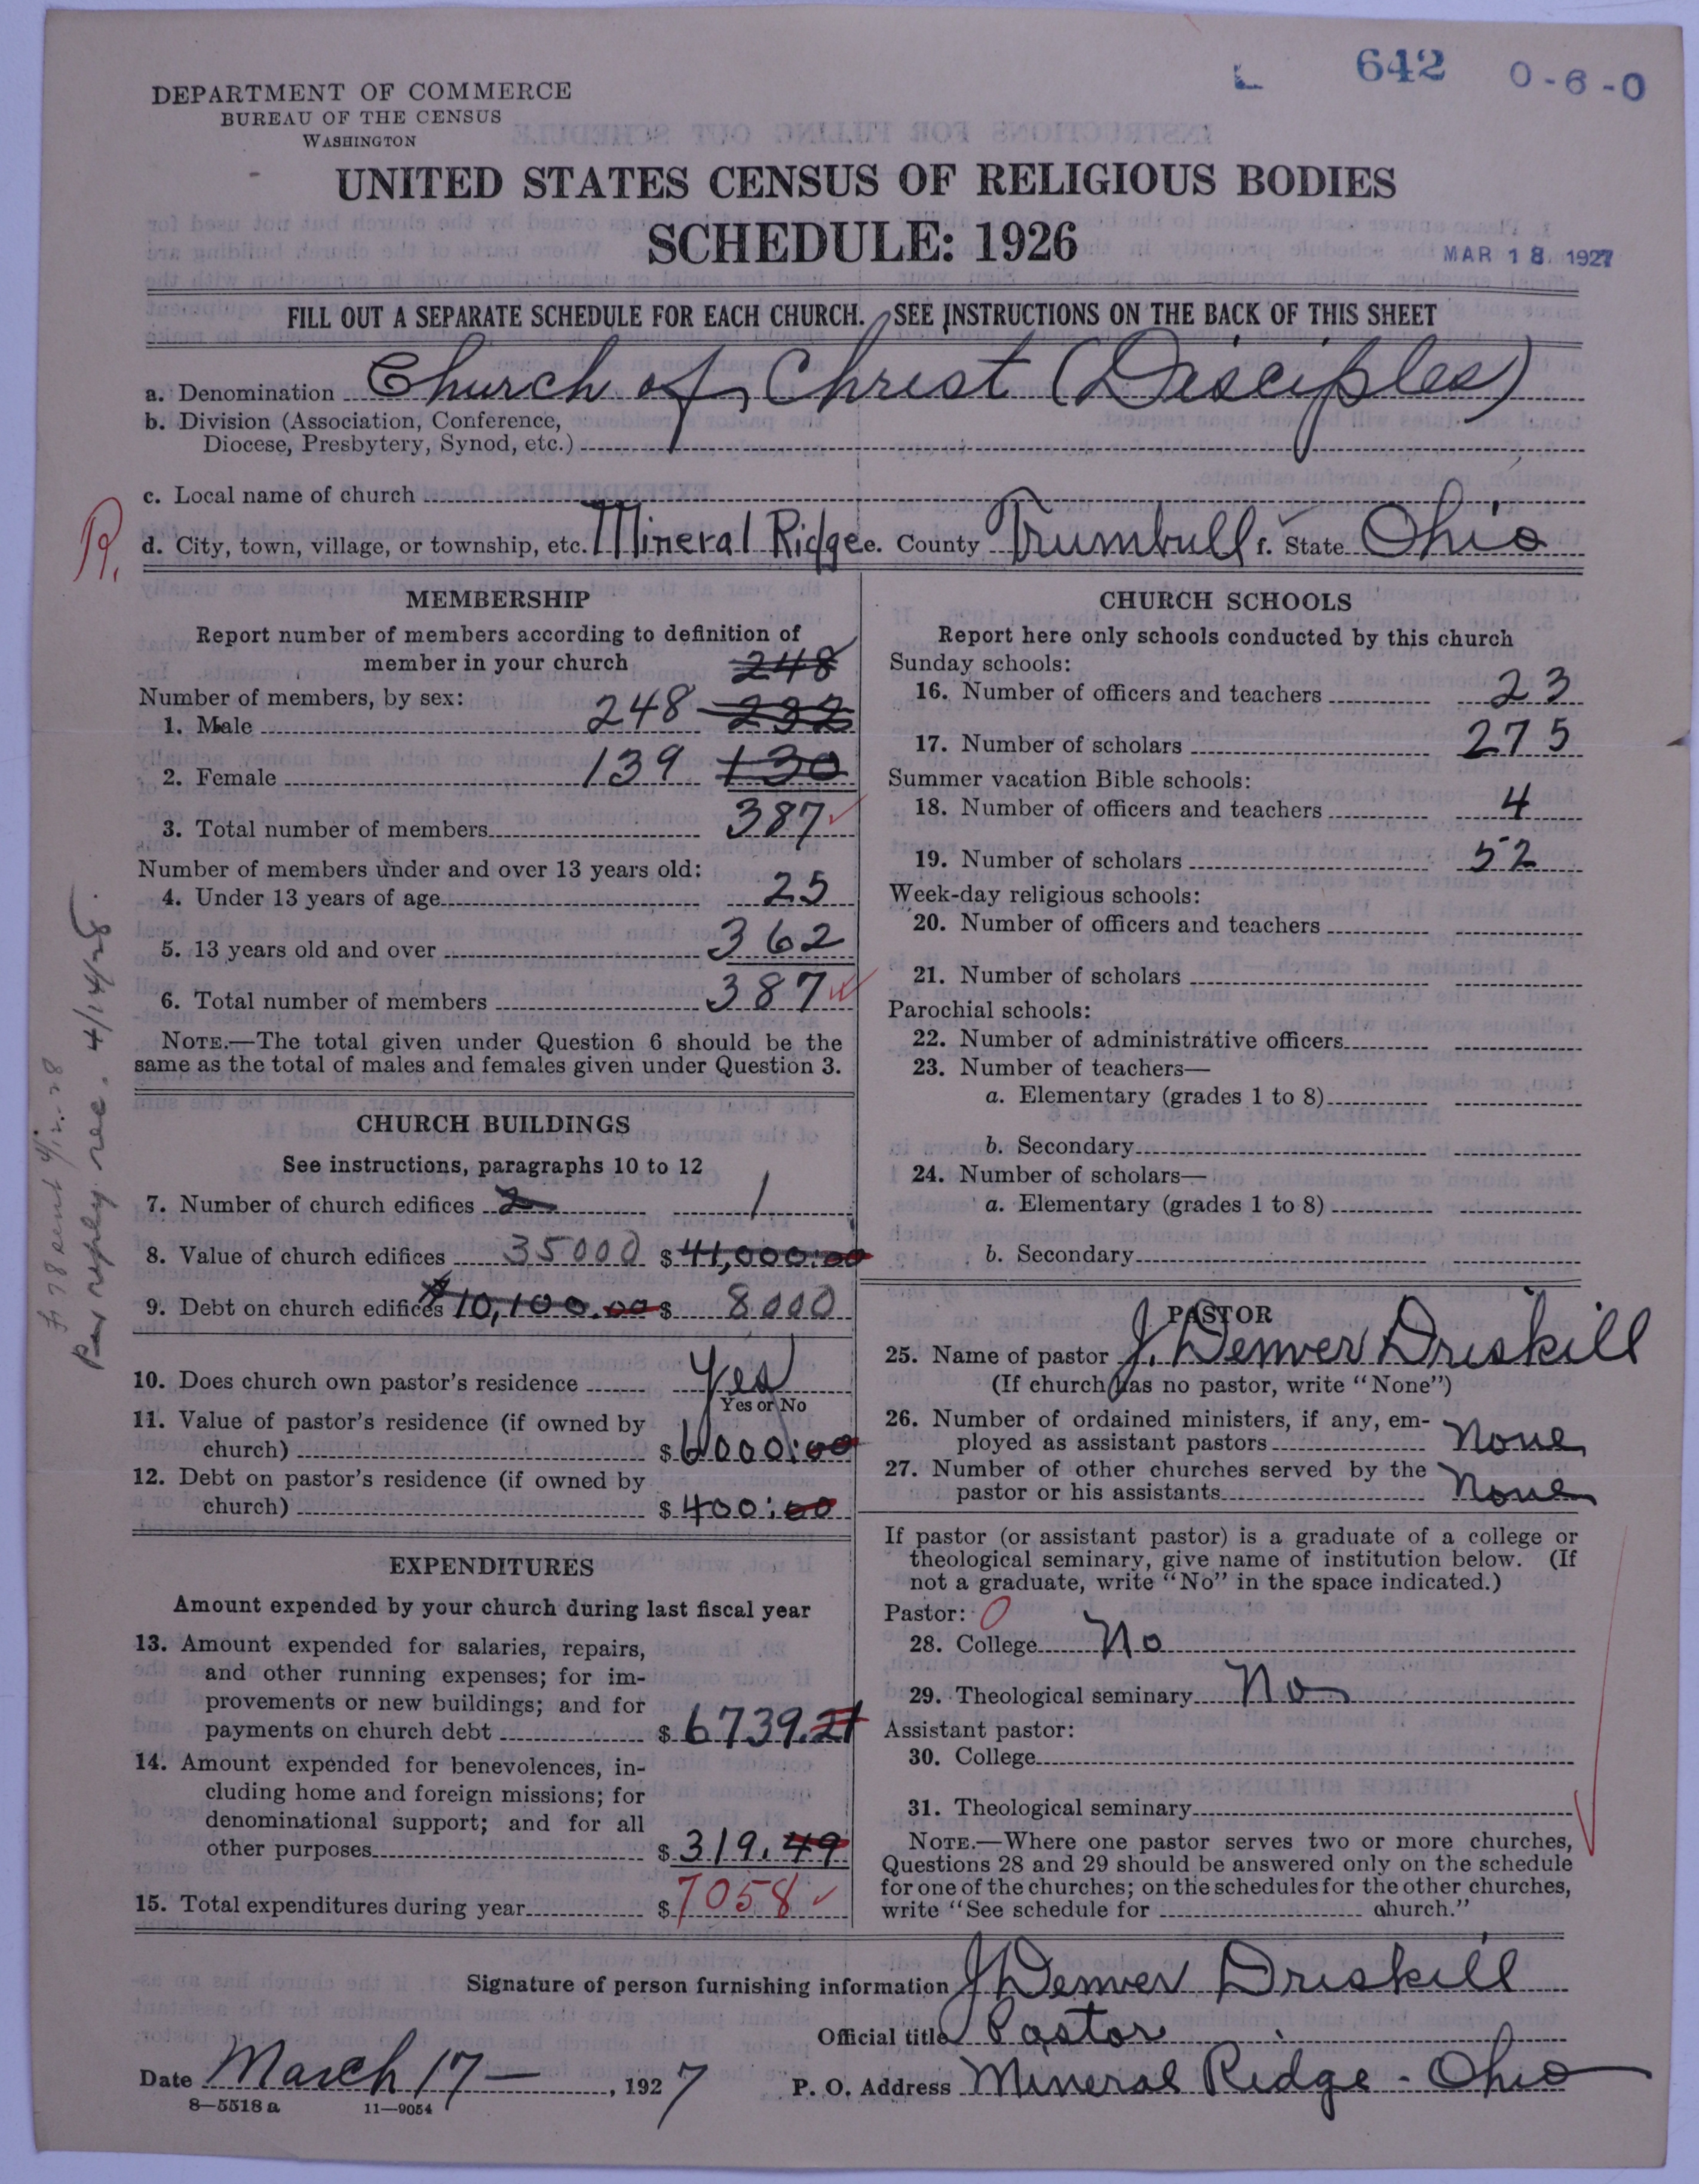 642 0-6-0
DEPARTMENT OF COMMERCE
BUREAU OF THE CENSUS
WASHINGTON
UNITED STATES CENSUS OF RELIGIOUS BODIES
SCHEDULE: 1926
MAR 18 1927
FILL OUT A SEPARATE SCHEDULE FOR EACH CHURCH. SEE INSTRUCTIONS ON THE BACK OF THIS SHEET
a. Denomination Church of Christ (Disciples)
b. Division (Association, Conference,
Diocese, Presbytery, Synod, etc.)
c. Local name of church
R.
d. City, town, village, or township, etc. Mineral Ridge e. County Trumbull f. State Ohio
MEMBERSHIP
Report number of members according to definition of
member in your church 248
Number of members, by sex:
1. Male 248 232
2. Female 139 130
3. Total number of members 387
Number of members under and over 13 years old:
4. Under 13 years of age 25
5. 13 years old and over 362
6. Total number of members 387
NOTE.—The total given under Question 6 should be the
same as the total of males and females given under Question 3.
CHURCH BUILDINGS
See instructions, paragraphs 10 to 12
7. Number of church edifices 2 1
8. Value of church edifices 35000 $ 41,000.00
9. Debt on church edifices $10,100.00 $ 8000
10. Does church own pastor's residence Yes
Yes or No
11. Value of pastor's residence (if owned by
church) $ 6000.00
12. Debt on pastor's residence (if owned by
church) $ 400.00
EXPENDITURES
Amount expended by your church during last fiscal year
13. Amount expended for salaries, repairs,
and other running expenses; for im-
provements or new buildings; and for
payments on church debt $ 6739.21
14. Amount expended for benevolences, in-
cluding home and foreign missions; for
denominational support; and for all
other purposes $ 319.49
15. Total expenditures during year $ 7058
CHURCH SCHOOLS
Report here only schools conducted by this church
Sunday schools:
16. Number of officers and teachers 23
17. Number of scholars 275
Summer vacation Bible schools:
18. Number of officers and teachers 4
19. Number of scholars 52
Week-day religious schools:
20. Number of officers and teachers
21. Number of scholars
Parochial schools:
22. Number of administrative officers
23. Number of teachers—
a. Elementary (grades 1 to 8)
b. Secondary
24. Number of scholars—
a. Elementary (grades 1 to 8)
b. Secondary
PASTOR
25. Name of pastor J. Denver Driskill
(If church has no pastor, write "None")
26. Number of ordained ministers, if any, em-
ployed as assistant pastors None
27. Number of other churches served by the
pastor or his assistants None
If pastor (or assistant pastor) is a graduate of a college or
theological seminary, give name of institution below. (If
not a graduate, write "No" in the space indicated.)
Pastor: 0
28. College No
29. Theological seminary No
Assistant pastor:
30. College
31. Theological seminary
NOTE.—Where one pastor serves two or more churches,
Questions 28 and 29 should be answered only on the schedule
for one of the churches; on the schedules for the other churches,
write "See schedule for church."
Signature of person furnishing information J Denver Driskill
Official title Pastor
Date March 17 —, 1927 P. O. Address Mineral Ridge - Ohio
8—5518 a 11—9054
sent 4/12/28
Per reply rec. 4/14/28.